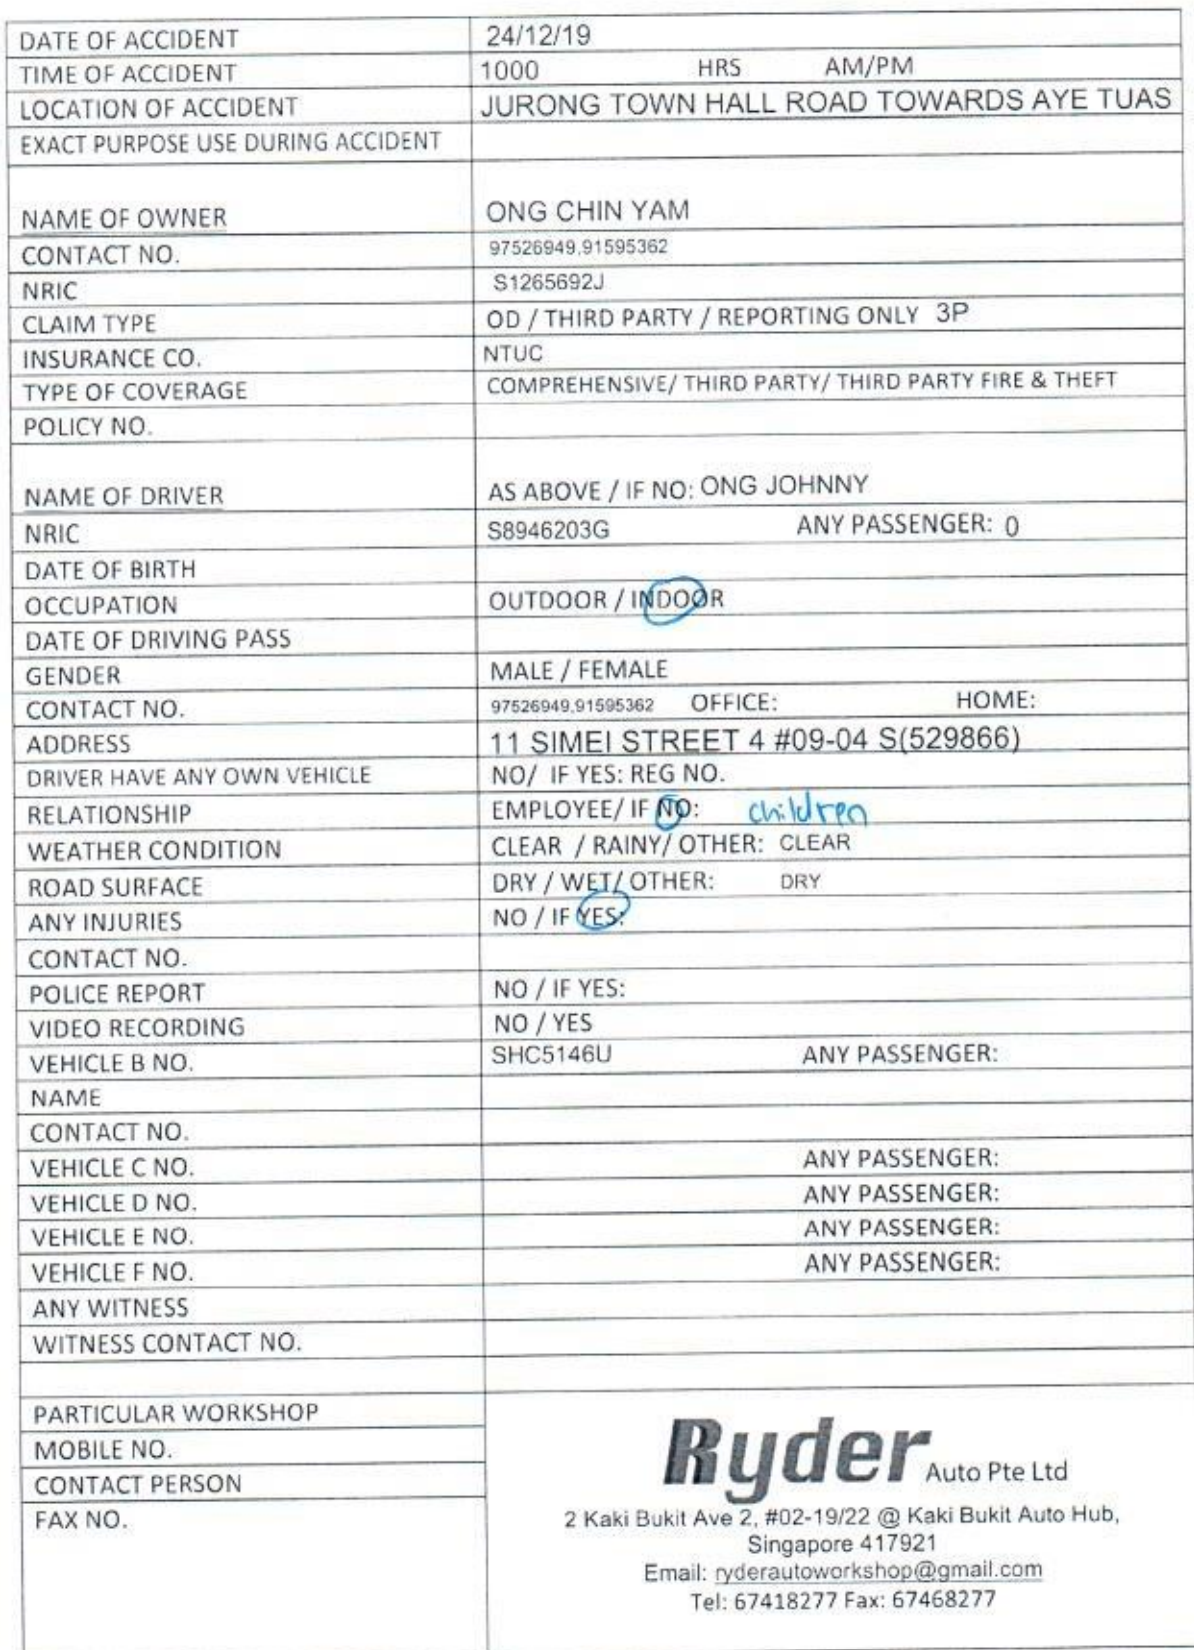 DATE OF ACCIDENT 24/12/19
TIME OF ACCIDENT 1000 HRS AM/PM
LOCATION OF ACCIDENT JURONG TOWN HALL ROAD TOWARDS AYE TUAS
EXACT PURPOSE USE DURING ACCIDENT
NAME OF OWNER ONG CHIN YAM
CONTACT NO. 97526949,91595362
NRIC S1265692J
CLAIM TYPE OD / THIRD PARTY / REPORTING ONLY 3P
INSURANCE CO. NTUC
TYPE OF COVERAGE COMPREHENSIVE/ THIRD PARTY/ THIRD PARTY FIRE & THEFT
POLICY NO.
NAME OF DRIVER AS ABOVE / IF NO: ONG JOHNNY
NRIC S8946203G ANY PASSENGER: 0
DATE OF BIRTH
OCCUPATION OUTDOOR / INDOOR
DATE OF DRIVING PASS
GENDER MALE / FEMALE
CONTACT NO. 97526949,91595362 OFFICE: HOME:
ADDRESS 11 SIMEI STREET 4 #09-04 S(529866)
DRIVER HAVE ANY OWN VEHICLE NO/ IF YES: REG NO.
RELATIONSHIP EMPLOYEE/ IF NO: children
WEATHER CONDITION CLEAR / RAINY/ OTHER: CLEAR
ROAD SURFACE DRY / WET/ OTHER: DRY
ANY INJURIES NO / IF YES:
CONTACT NO.
POLICE REPORT NO / IF YES:
VIDEO RECORDING NO / YES
VEHICLE B NO. SHC5146U ANY PASSENGER:
NAME
CONTACT NO.
VEHICLE C NO. ANY PASSENGER:
VEHICLE D NO. ANY PASSENGER:
VEHICLE E NO. ANY PASSENGER:
VEHICLE F NO. ANY PASSENGER:
ANY WITNESS
WITNESS CONTACT NO.
PARTICULAR WORKSHOP
MOBILE NO.
CONTACT PERSON
FAX NO.
Ryder Auto Pte Ltd
2 Kaki Bukit Ave 2, #02-19/22 @ Kaki Bukit Auto Hub,
Singapore 417921
Email: ryderautoworkshop@gmail.com
Tel: 67418277 Fax: 67468277